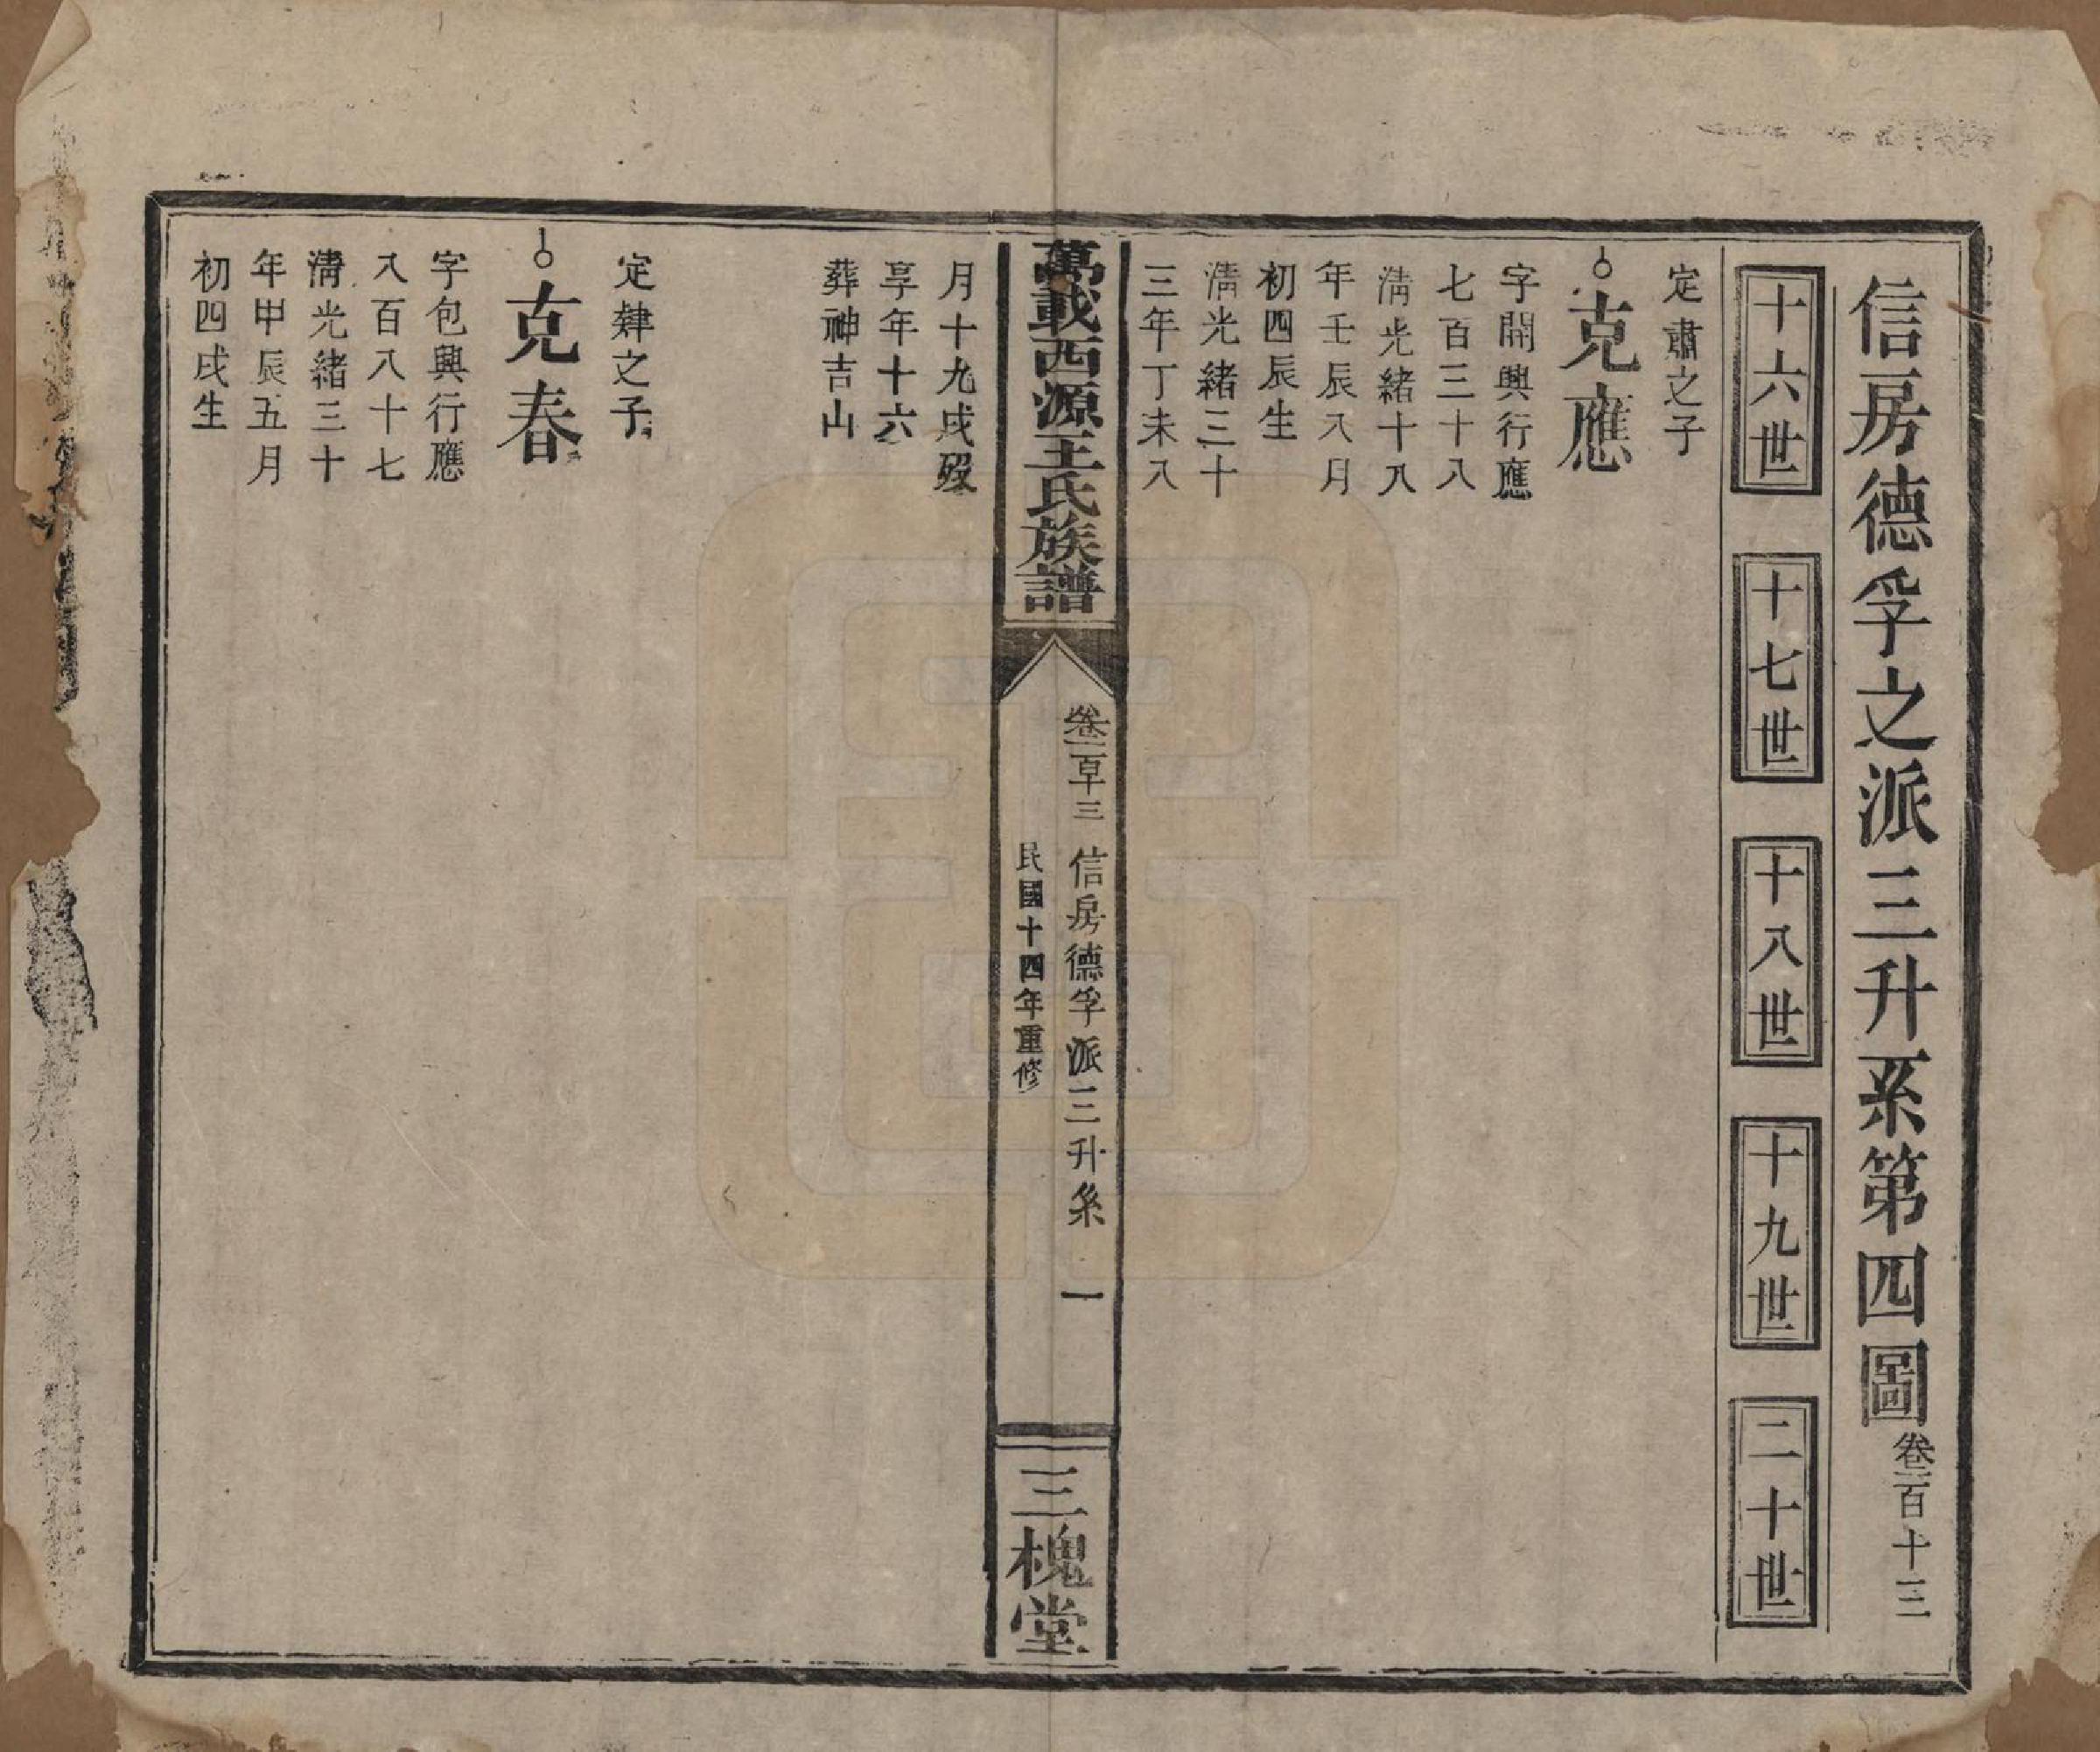 信房德孚之派三升系第四圖 卷一百十三
十六世
十七世
十八世
十九世
二十世
定肅之子
克應
字開興行應
七百三十八
清光緒十八
年壬辰八月
初四辰生
清光緒三十
三年丁未八
萬載西源王氏族譜
卷一百十三 信房德孚派三升系 一
民國十四年重修
三槐堂
月十九戌歿
享年十六
葬神吉山
定肄之子
克春
字包興行應
八百八十七
清光緒三十
年甲辰五月
初四戌生